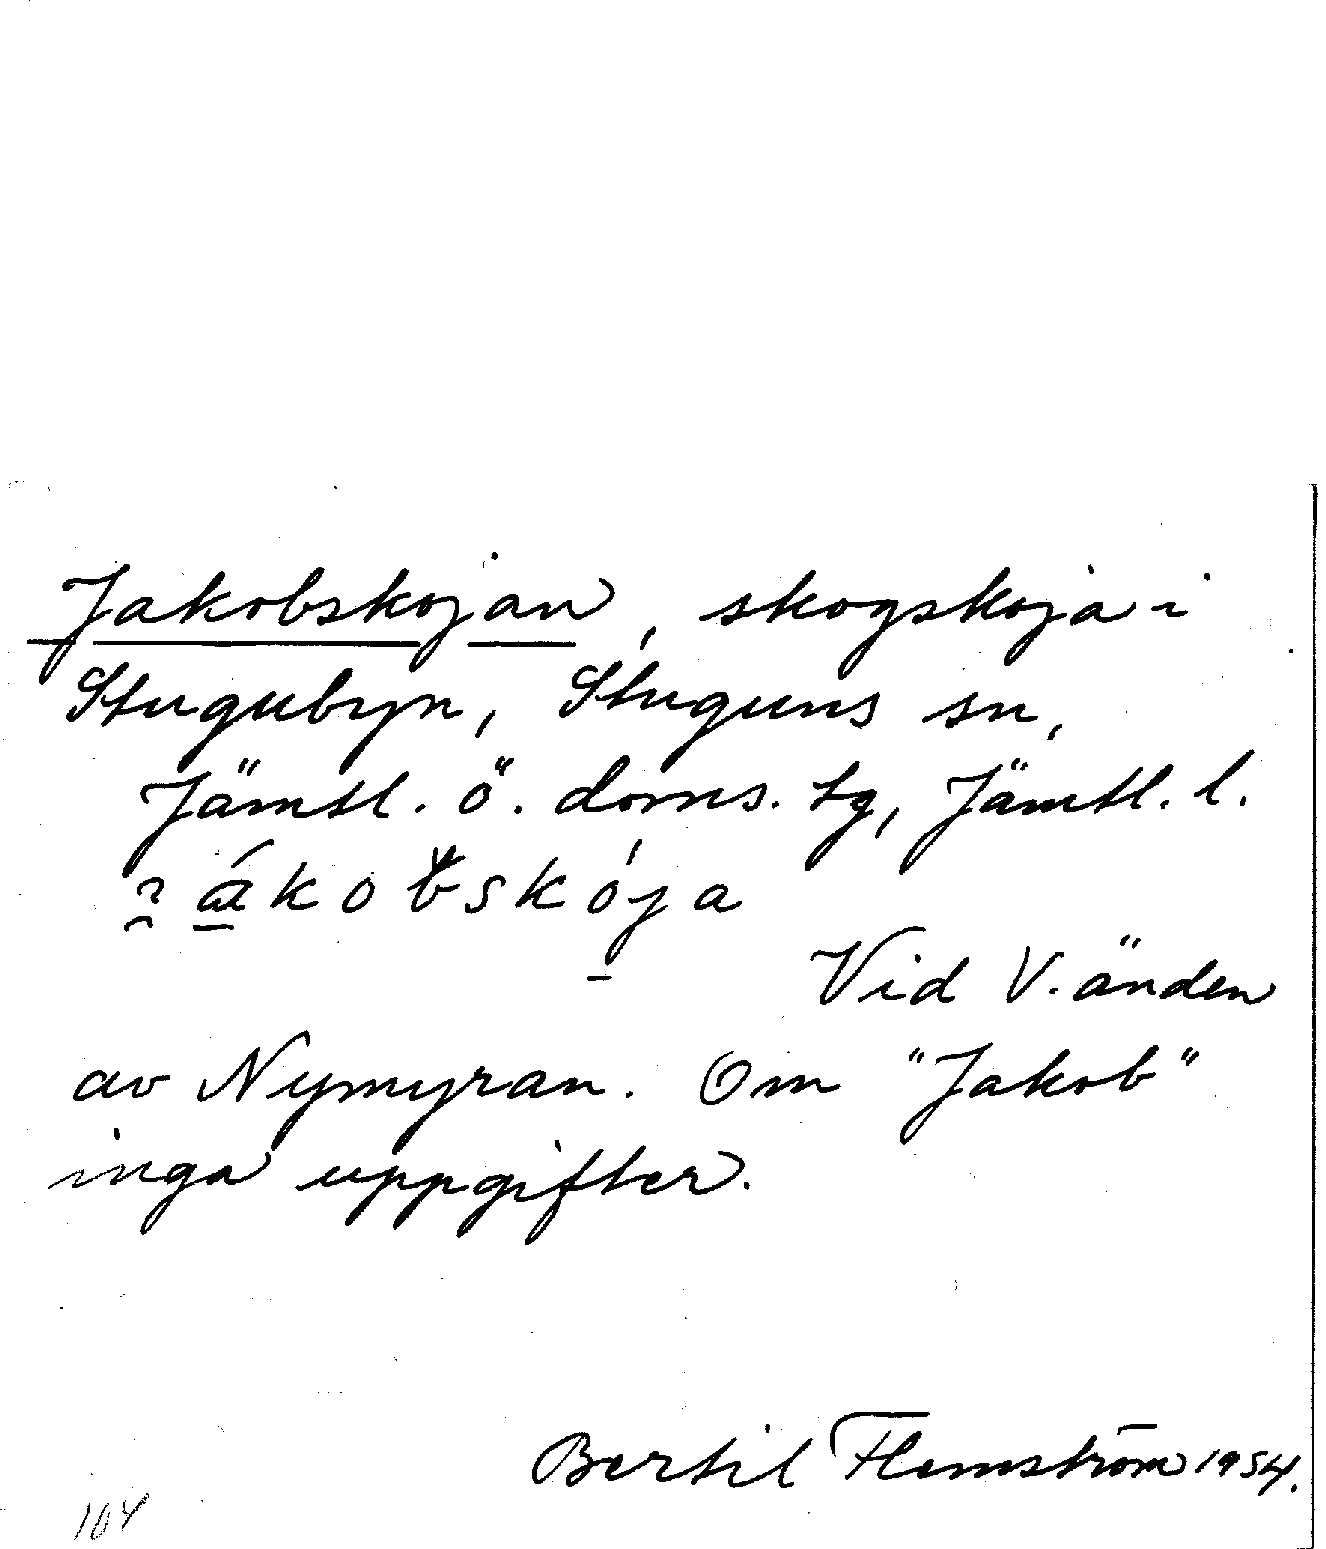 Jakobskojan, skogskoja i
Stugubyn, Stuguns sn,
Jämtl. ö. doms. tg, Jämtl. l.
Vid V. änden
av Nymyran. Om "Jakob"
inga uppgifter.
Bertil Flemström 1954.
104